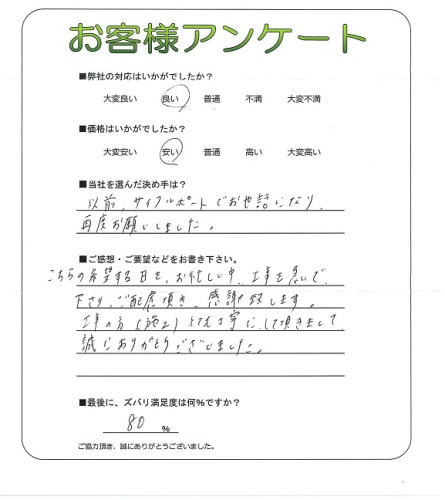 お客様アンケート
■弊社の対応はいかがでしたか？
大変良い 良い 普通 不満 大変不満
■価格はいかがでしたか？
大変安い 安い 普通 高い 大変高い
■当社を選んだ決め手は？
以前、サイクルポートでお世話になり、
再度お願いしました。
■ご感想・ご要望などをお書き下さい。
こちらの希望する日を、お忙しい中、工事を急いで
下さり、ご配慮頂き、感謝致します。
工事の方（施工）とても丁寧にして頂きまして
誠にありがとうございました。
■最後に、ズバリ満足度は何％ですか？
80 ％
ご協力頂き、誠にありがとうございました。